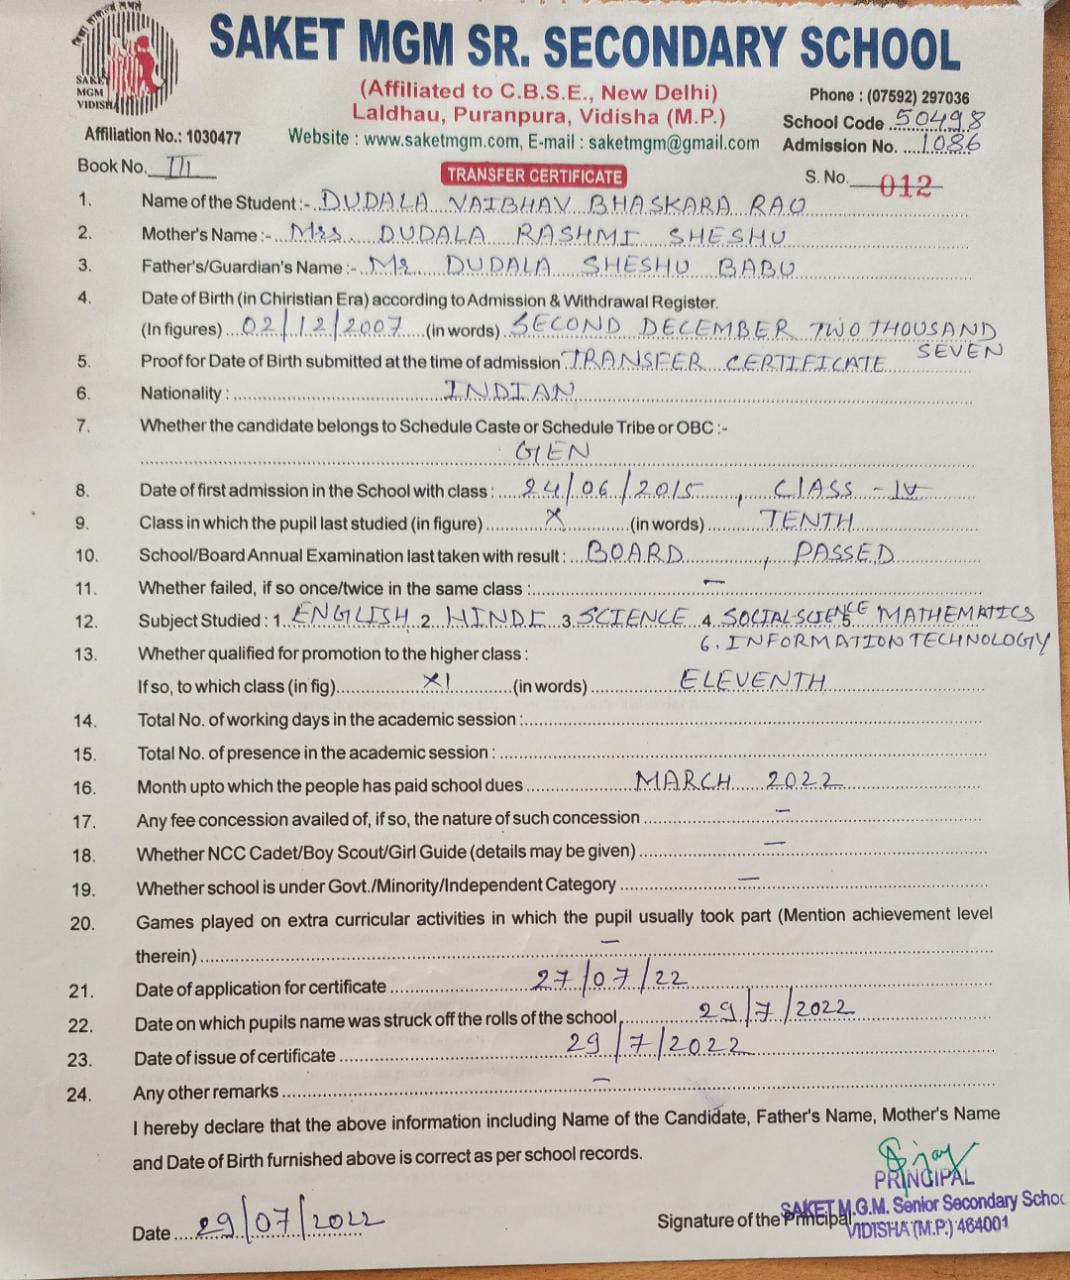 SAKET MGM SR. SECONDARY SCHOOL
SAKET
MGM
VIDISHA
(Affiliated to C.B.S.E., New Delhi)
Laldhau, Puranpura, Vidisha (M.P.)
Phone : (07592) 297036
School Code 50498
Affiliation No.: 1030477
Website : www.saketmgm.com, E-mail : saketmgm@gmail.com
Admission No. 1086
Book No. III
TRANSFER CERTIFICATE
S. No. 012
1. Name of the Student :- DUDALA VAIBHAV BHASKARA RAO
2. Mother's Name :- Mrs. DUDALA RASHMI SHESHU
3. Father's/Guardian's Name :- Mr DUDALA SHESHU BABU
4. Date of Birth (in Chiristian Era) according to Admission & Withdrawal Register.
(In figures) 02/12/2007 (in words) SECOND DECEMBER TWO THOUSAND
SEVEN
5. Proof for Date of Birth submitted at the time of admission TRANSFER CERTIFICATE
6. Nationality : INDIAN
7. Whether the candidate belongs to Schedule Caste or Schedule Tribe or OBC :-
GEN
8. Date of first admission in the School with class : 24/06/2015, CLASS - IV
9. Class in which the pupil last studied (in figure) X (in words) TENTH
10. School/Board Annual Examination last taken with result : BOARD, PASSED
11. Whether failed, if so once/twice in the same class : -
12. Subject Studied : 1. ENGLISH 2. HINDI 3. SCIENCE 4. SOCIAL-SCIENCE 5. MATHEMATICS
6. INFORMATION TECHNOLOGY
13. Whether qualified for promotion to the higher class :
If so, to which class (in fig) XI (in words) ELEVENTH
14. Total No. of working days in the academic session :
15. Total No. of presence in the academic session :
16. Month upto which the people has paid school dues MARCH 2022
17. Any fee concession availed of, if so, the nature of such concession -
18. Whether NCC Cadet/Boy Scout/Girl Guide (details may be given) -
19. Whether school is under Govt./Minority/Independent Category -
20. Games played on extra curricular activities in which the pupil usually took part (Mention achievement level
therein) -
21. Date of application for certificate 27/07/22
22. Date on which pupils name was struck off the rolls of the school, 29/7/2022
23. Date of issue of certificate 29/7/2022
24. Any other remarks -
I hereby declare that the above information including Name of the Candidate, Father's Name, Mother's Name
and Date of Birth furnished above is correct as per school records.
PRINCIPAL
SAKET M.G.M. Senior Secondary Schoo
Date 29/07/2022
Signature of the Principal
VIDISHA (M.P.) 464001